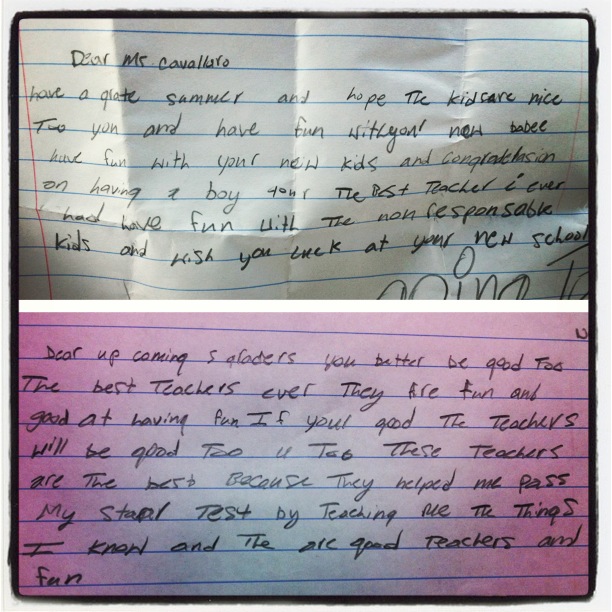 Dear Ms Cavallaro
have a grate summer and hope The kids are nice
Too you and have fun with your new babee
have fun with your new kids and congratulasion
on having a boy your The Best Teacher i ever
had have fun with The non responsable
kids and wish you luck at your new school
going To
Dear up coming 5 graders you better be good Too
The best Teachers ever They Are fun and
good at having fun If your good The Teachers
will be good Too u Too These Teachers
are The best Because They helped me pass
My Staar Test by Teaching Me The Things
I know and The are good Teachers and
fun